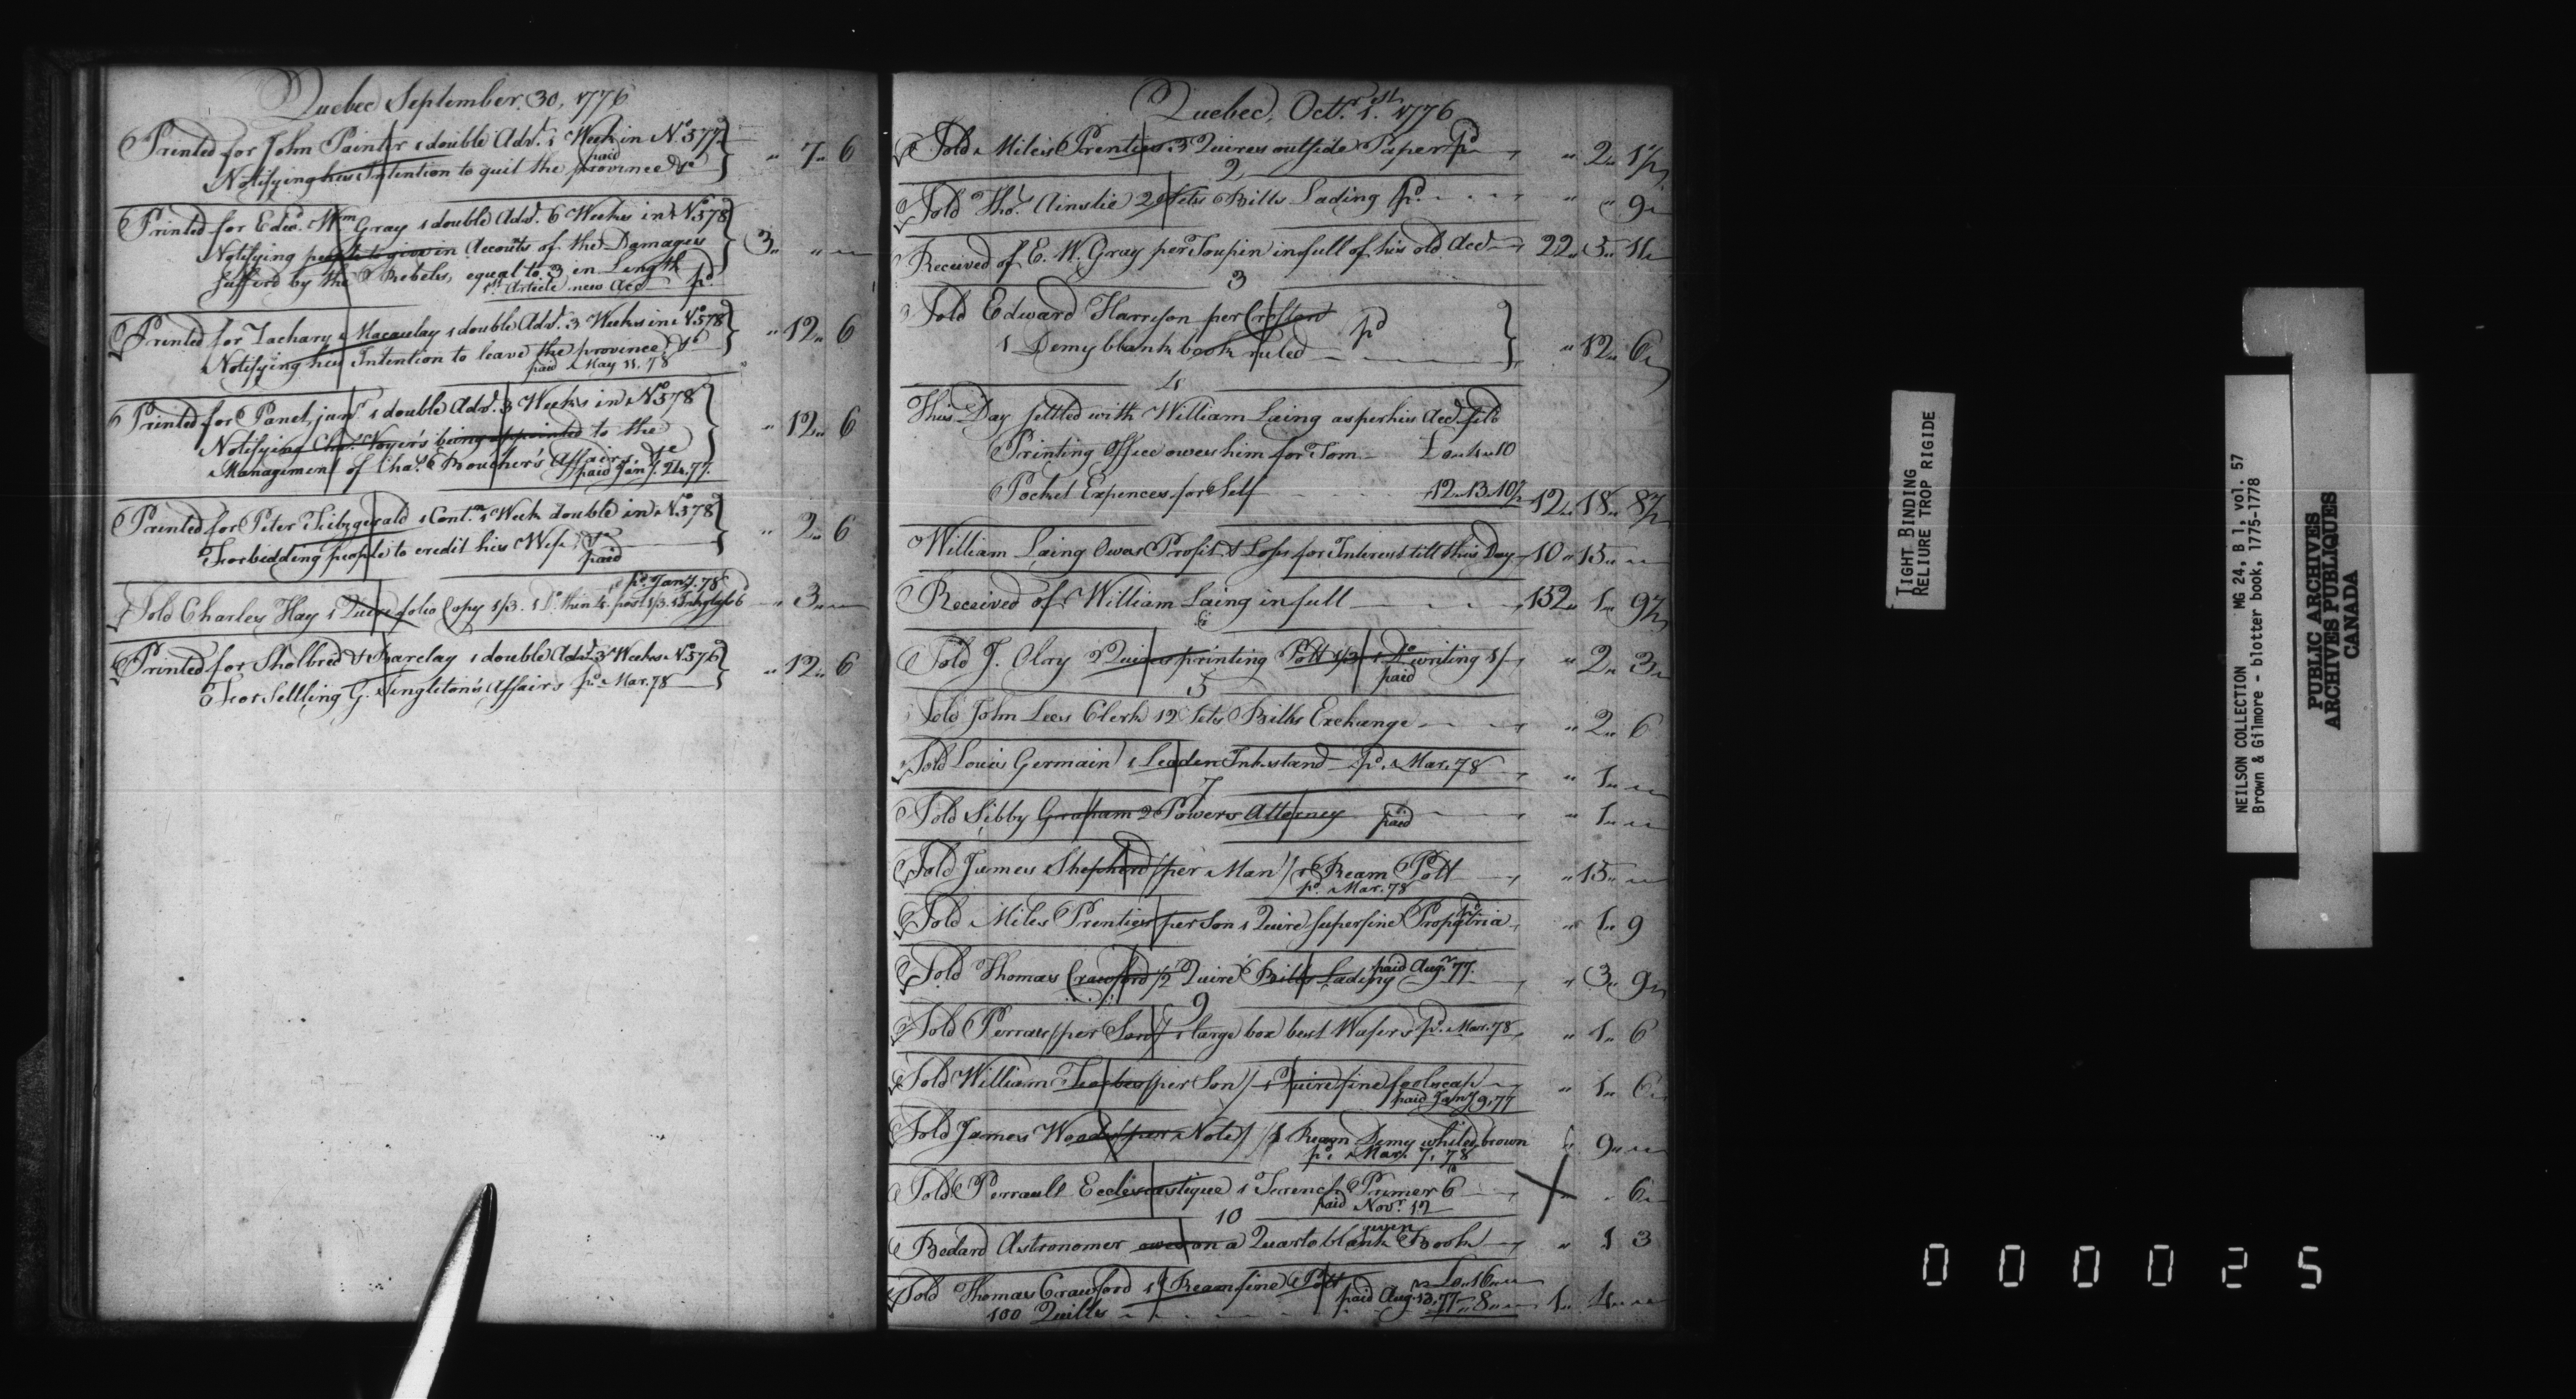 Quebec September. 30, 1776
Printed for John Painter 1 double Adv.t 1 Week in No. 577
Notifying his Intention to quit the province &c
paid
" 7 " 6
Printed for Edwd. Wm Gray 1 double Adv.t 6 Weeks in No. 578
Notifying people to give in Accounts of the Damages
sufferd by the Rebels, equal to 3 in Length
1st Article new Acc pd.
3 " " "
Printed for Zachary Macaulay 1 double Adv.t 3 Weeks in No. 578
Notifying his Intention to leave the province &c
paid May 11. 78
" 12 " 6
Printed for Panet, junr. 1 double Adv.t 3 Weeks in No. 578
Notifying Chas. Voyer's being appointed to the
Management of Chas. Boucher's Affairs. &c
paid Jany. 24. 77.
" 12 " 6
Printed for Peter Fitzgerald 1 Cont.n 1 Week double in No. 578
Forbidding people to credit his Wife, &c
paid
" 2 " 6
pd. Jany. 78
Sold Charles Hay 1 Quire folio Copy 1/3. 1 Do. thin 4to. post 1/3.
" 3 " "
Printed for Sholbred & Barclay 1 double Adv.t 3 Weeks No. 576
For Settling G. Singleton's Affairs pd. Mar. 78
" 12 " 6
Quebec, Octr. 1st. 1776
Sold Miles Prenties 3 Quires outside Paper pd " 2 " 1½
2
Sold Thos. Ainslie 2 Sets Bills Lading pd. " " 9
Received of E. W. Gray per Toupin in full of his old Acct 22 " 3 " 11
3
Sold Edward Harrison per Crofton
1 Demy blank book ruled pd " 12 " 6
4
This Day settled with William Laing as per his Acct. filed
Printing Office owes him for Tom £ 0 " 4 " 10
Pocket Expences for Self 12 " 13 " 10½ 12 " 18 " 8½
William Laing Owes Profit & Loss for Interest till this Day 10 " 15 " "
Received of William Laing in full 152 " 1 " 9½
Sold J. Olry 2 Quires printing Pott 1/3 1 Do. writing 1/ " 2 " 3
paid
5
Sold John Lees Clerk 12 Sets Bills Exchange " 2 " 6
Sold Louis Germain 1 Leaden Inkstand pd. Mar. 78 " 1 " "
7
Sold Sibby Graham 2 Powers Attorney paid " 1 " "
Sold James Shepherd (per Man) 1 Ream Pott " 15 " "
pd. Mar. 78
Sold Miles Prenties per Son 1 Quire superfine Propatria " 1 " 9
Sold Thomas Crawford ½ Quire Bills Lading paid Augt. 77. " 3 " 9
9
Sold Perras (per Son) 1 large box best Wafers pd. Mar. 78 " 1 " 6
Sold William Forbes (per Son) 1 Quire fine foolscap " 1 " 6
paid Jany 9, 77
Sold James Woods (per Note) 1 Ream Demy whited brown " 9 " "
pd. Mar. 7, 78
Sold Perrault Ecclesiastique 1 French Primer 6 " " 6
paid Novr. 12
10
Bedard Astronomer owed on a Quarto blank Book " 1 3
given
Sold Thomas Crawford 1 Ream fine Pott £0 " 16 " "
100 Quills paid Aug. 13, 77 " 8 " " 1 " 4 " "
TIGHT BINDING
RELIURE TROP RIGIDE
NEILSON COLLECTION MG 24, B 1, vol. 57
Brown & Gilmore - blotter book, 1775-1778
PUBLIC ARCHIVES
ARCHIVES PUBLIQUES
CANADA
000025